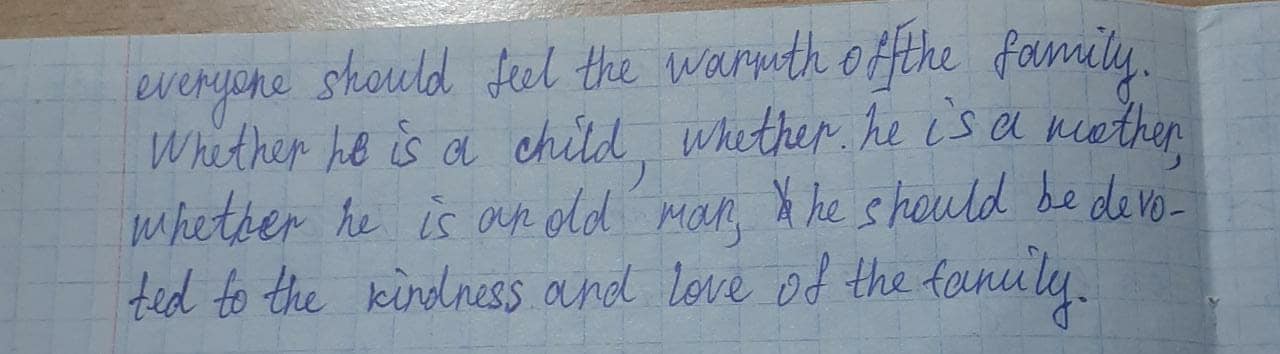 everyone should feel the warmth of the family.
Whether he is a child, whether. he is a mother,
whether he is an old man, he should be devo-
ted to the kindness and love of the family.